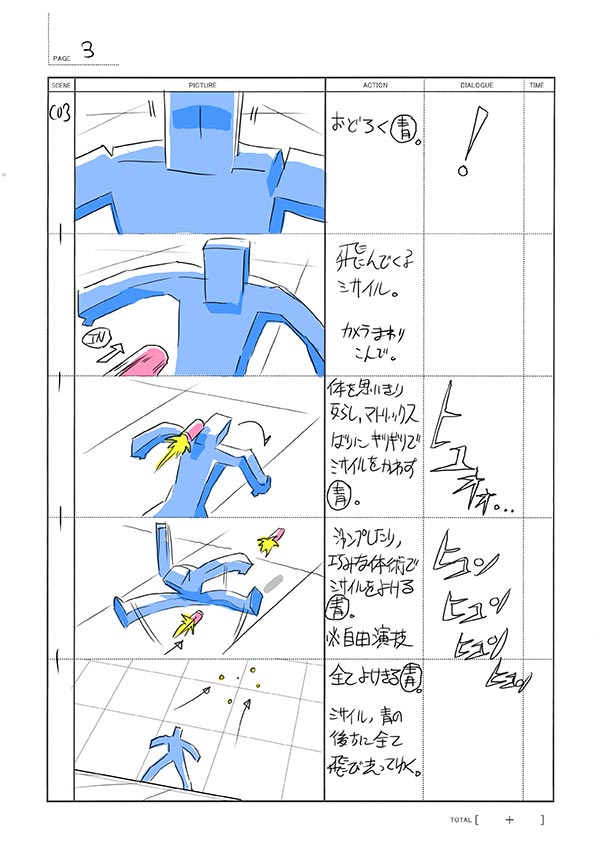 PAGE 3
SCENE PICTURE ACTION DIALOGUE TIME
C03
おどろく青。
!
飛んでくる
ミサイル。
カメラまわり
こんで。
IN
体を思いきり
反らし、マトリックス
ばりにギリギリで
ミサイルをかわす
青。
ヒュオオ...
ジャンプしたり、
巧みな体術で
ミサイルをよける
青。
※自由演技
ヒュン
ヒュン
ヒュン
ヒュン
全てよけきる青。
ミサイル、青の
後方に全て
飛び去ってゆく。
TOTAL [ + ]